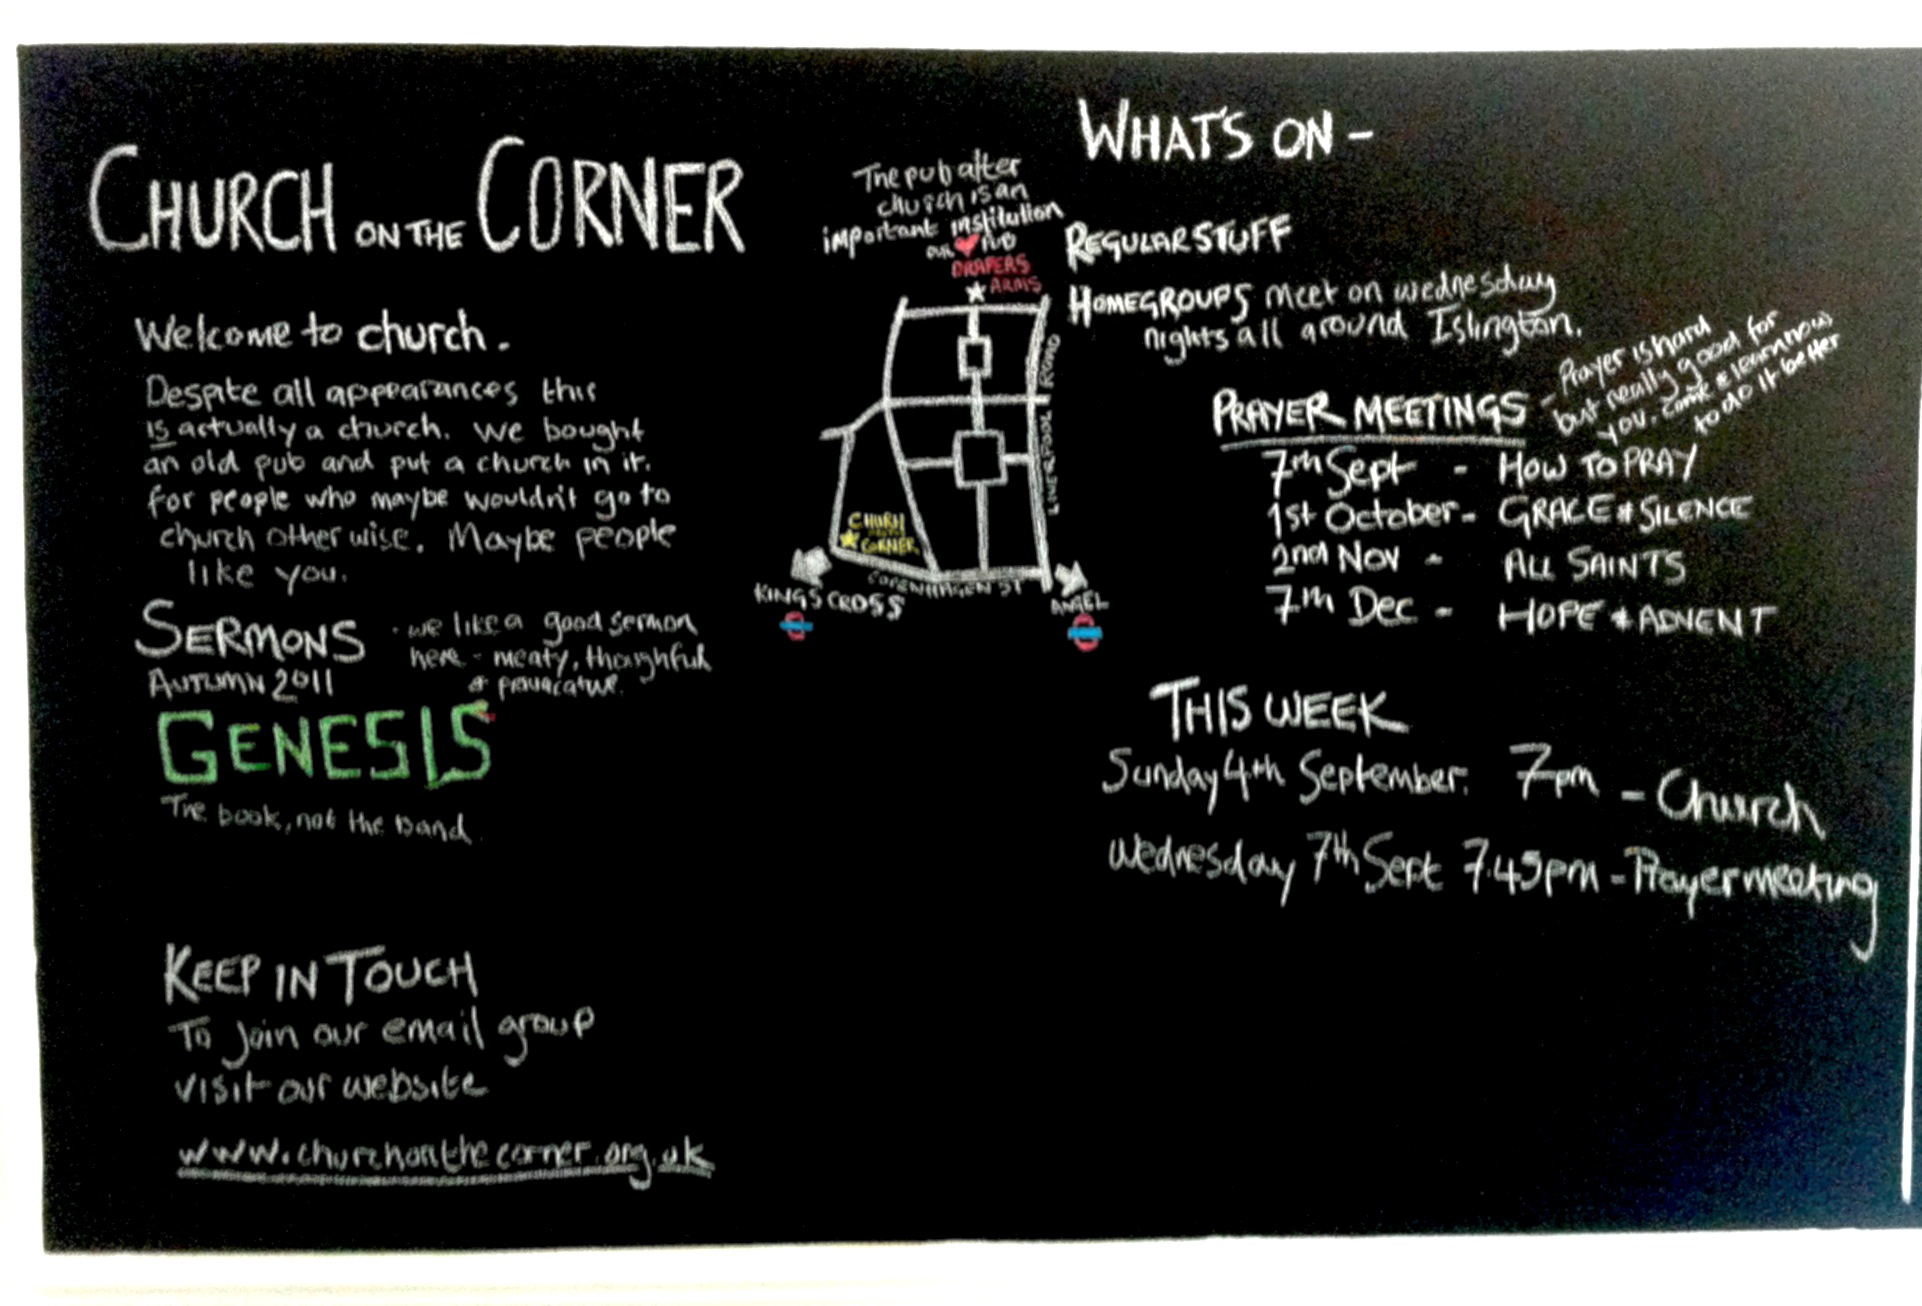 CHURCH ON THE CORNER
Welcome to church.
Despite all appearances this
is actually a church. We bought
an old pub and put a church in it.
for people who maybe wouldn't go to
church otherwise. Maybe people
like you.
SERMONS
AUTUMN 2011
- we like a good sermon
here - meaty, thoughful
& provacative.
GENESIS
The book, not the band
KEEP IN TOUCH
To join our email group
visit our website
www.churchonthecorner.org.uk
The pub after
church is an
important institution
our ♥ PUB
DRAPERS
ARMS
LIVERPOOL ROAD
CHURH
CORNER
COPENHAGEN ST
KINGS CROSS
ANGEL
WHAT'S ON -
REGULAR STUFF
HOMEGROUPS meet on wednesday
nights all around Islington.
PRAYER MEETINGS
- Prayer is hard
but really good for
you. Come & learn how
to do it better
7th Sept - HOW TO PRAY
1st October - GRACE & SILENCE
2nd Nov - ALL SAINTS
7th Dec - HOPE & ADVENT
THIS WEEK
Sunday 4th September. 7pm - Church
Wednesday 7th Sept 7.45pm - Prayer meeting